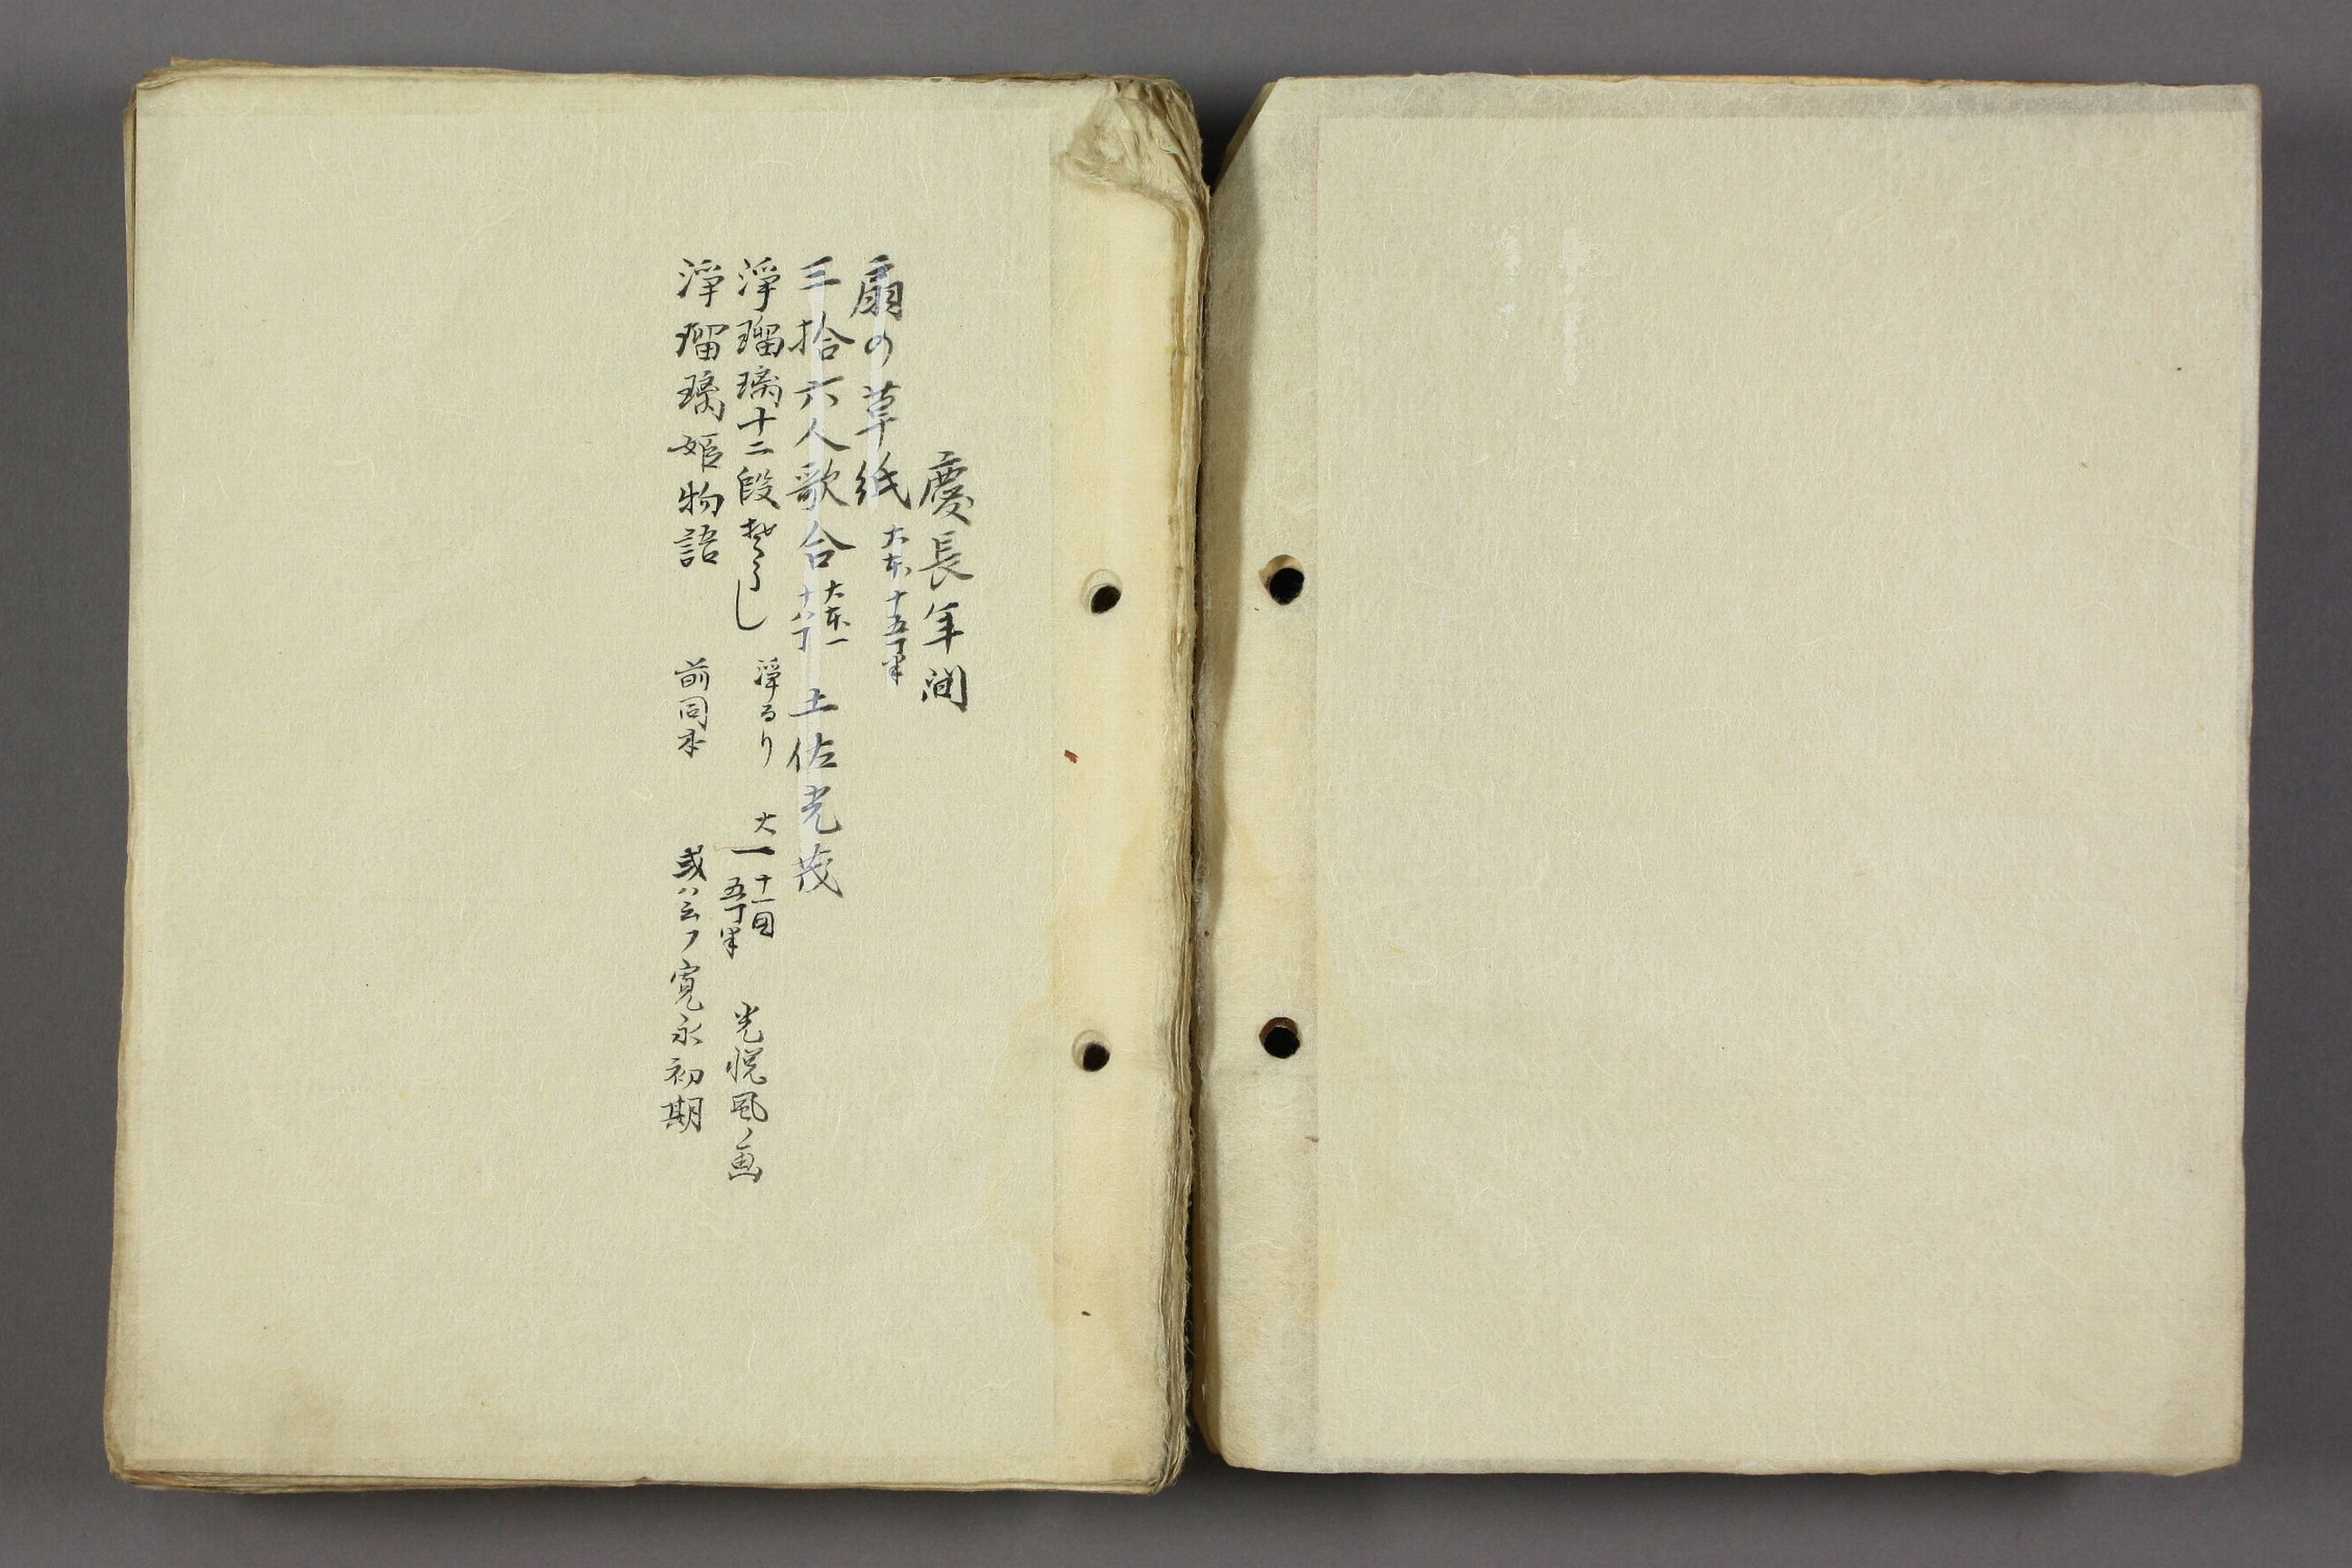 慶長年間
扇の草紙 大本 十五丁半
三拾六人歌合 大本一 十八丁 土佐光茂
浄瑠璃十二段さうし 浄るり 大一 十一図 五丁半 光悦風ノ画
浄瑠璃姫物語 前同本 或ハ云フ寛永初期